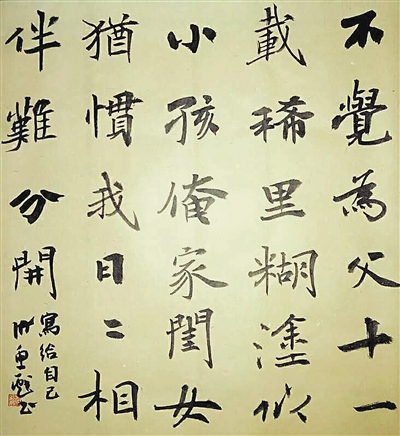 不覺為父十一
載稀里糊塗似
小孩俺家閨女
猶慣我日〻相
伴難分開
寫給自己